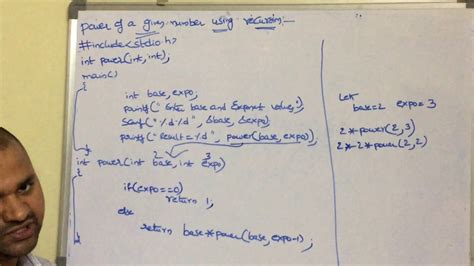 power of a given number using recursion:-
#include<stdio.h>
int power(int,int);
main()
{
int base, expo;
printf("Enter base and Exponent values:");
scanf("%d%d", &base, &expo);
printf("Result=%d", power(base, expo));
}
2 3
int power(int base, int expo)
{
if(expo==0)
return 1;
else
return base*power(base, expo-1);
}
Let
base=2 expo=3
2*power(2,3)
2*2*power(2,2)